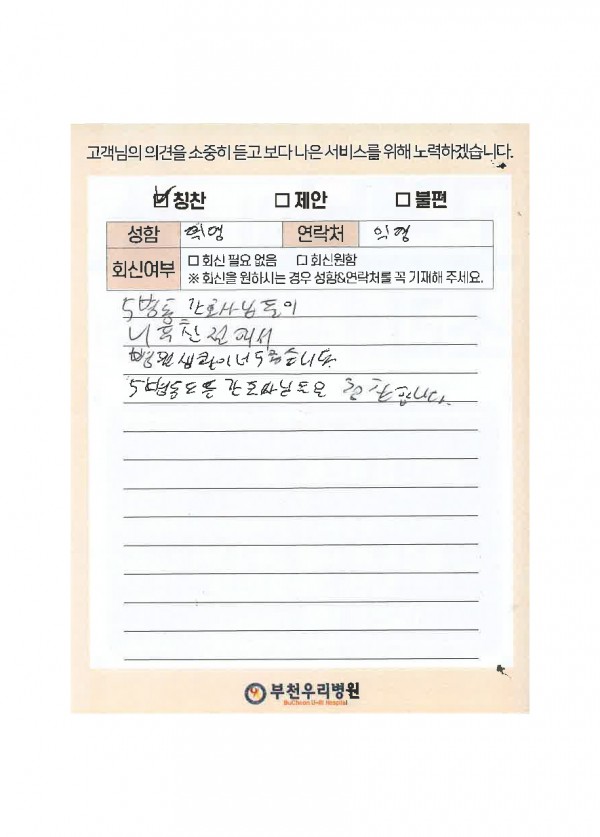 고객님의 의견을 소중히 듣고 보다 나은 서비스를 위해 노력하겠습니다.
☑ 칭찬 ☐ 제안 ☐ 불편
성함 익명 연락처 익명
회신여부 ☐ 회신 필요 없음 ☐ 회신원함
※ 회신을 원하시는 경우 성함&연락처를 꼭 기재해 주세요.
5병동 간호사님들이
너무 친절해서
병원생활이 너무 좋습니다
5병동 모든 간호사님들을 칭찬합니다.
부천우리병원
BuCheon U-RI Hospital